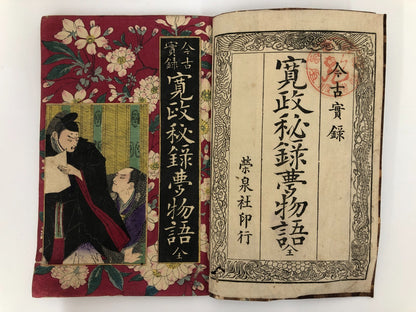 今古實録
寛政秘録夢物語
全
今古實録
寛政秘録夢物語
全
榮泉社印行